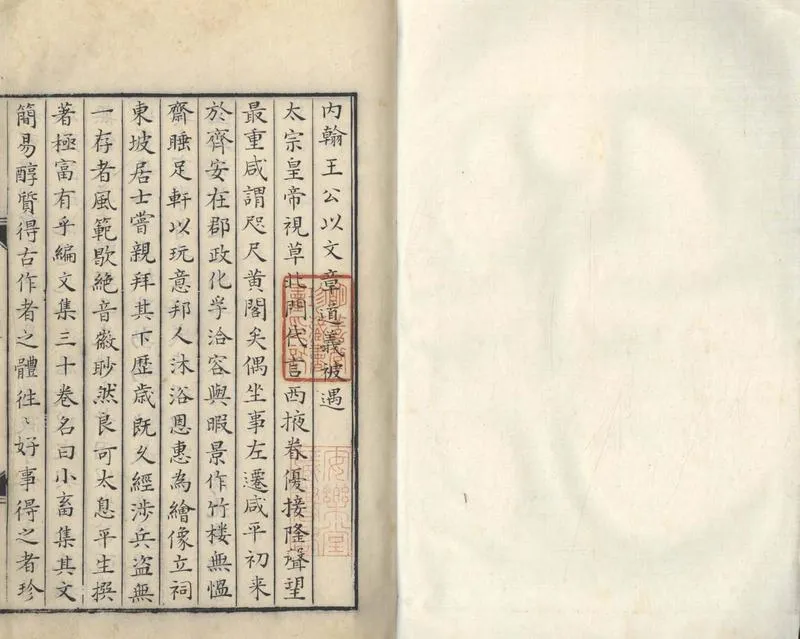 内翰王公以文章道義被遇
太宗皇帝視草北門代言西掖眷優接隆聲望
最重咸謂咫尺黄閣矣偶坐事左遷咸平初来
於齊安在郡政化孚洽容與暇景作竹楼無愠
齋睡足軒以玩意邦人沐浴恩惠為繪像立祠
東坡居士嘗親拜其下歷歳既久經涉兵盗無
一存者風範歇絶音徽眇然良可太息平生撰
著極富有手編文集三十卷名曰小畜集其文
簡易醇質得古作者之體徃〻好事得之者珍
安樂堂